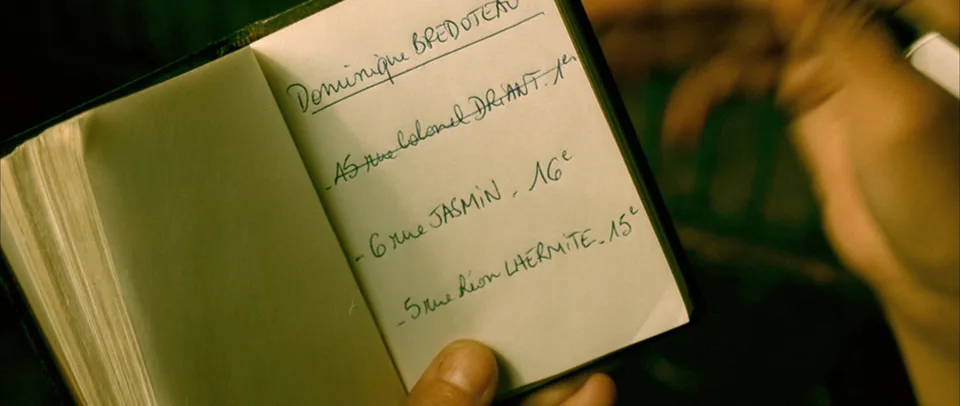 Dominique BREDOTEAU
- 15 rue Colonel DRIANT. 1er
- 6 rue JASMIN - 16e
- 5 rue Léon LHERMITE - 15e